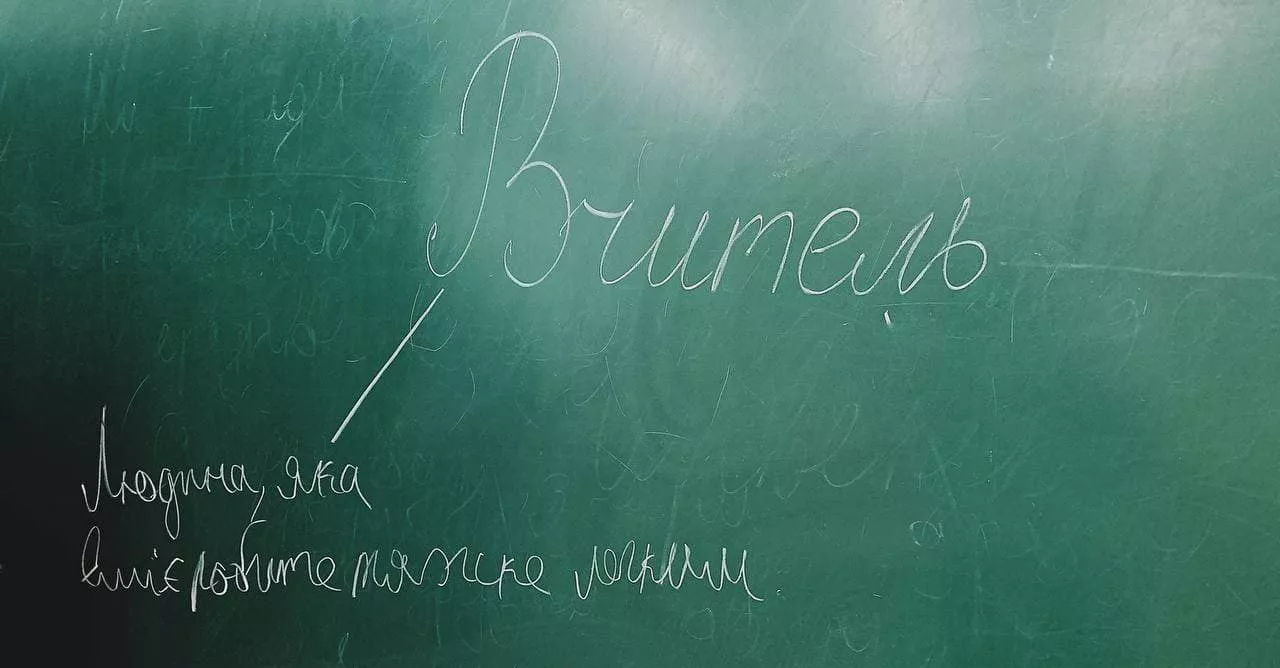 Вчитель
Людина, яка
вміє робити тяжке легким.